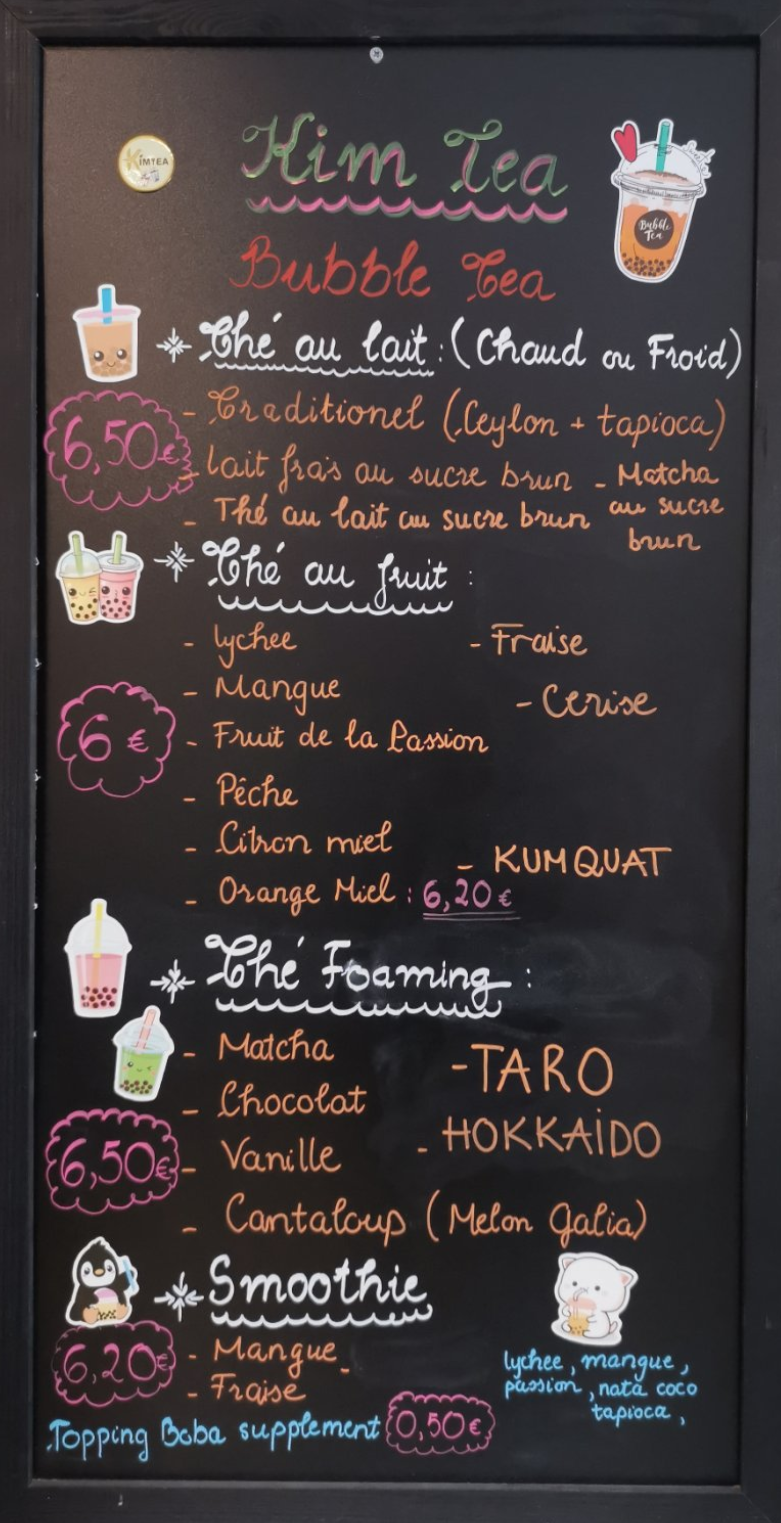 KIMTEA
Kim Tea
Bubble Tea
Bubble Tea
Thé au lait : (Chaud ou Froid)
6,50€
- Traditionel (Ceylon + tapioca)
- lait frais au sucre brun
- Thé au lait au sucre brun
- Matcha
au sucre
brun
Thé au fruit :
6 €
- lychee
- Fraise
- Mangue
- Cerise
- Fruit de la Passion
- Pêche
- Citron miel
- KUMQUAT
- Orange Miel : 6,20€
Thé Foaming :
6,50€
- Matcha
- TARO
- Chocolat
- HOKKAÏDO
- Vanille
- Cantaloup (Melon Galia)
Smoothie
6,20€
- Mangue
- Fraise
lychee, mangue,
passion, nata coco
tapioca,
Topping Boba supplement 0,50€